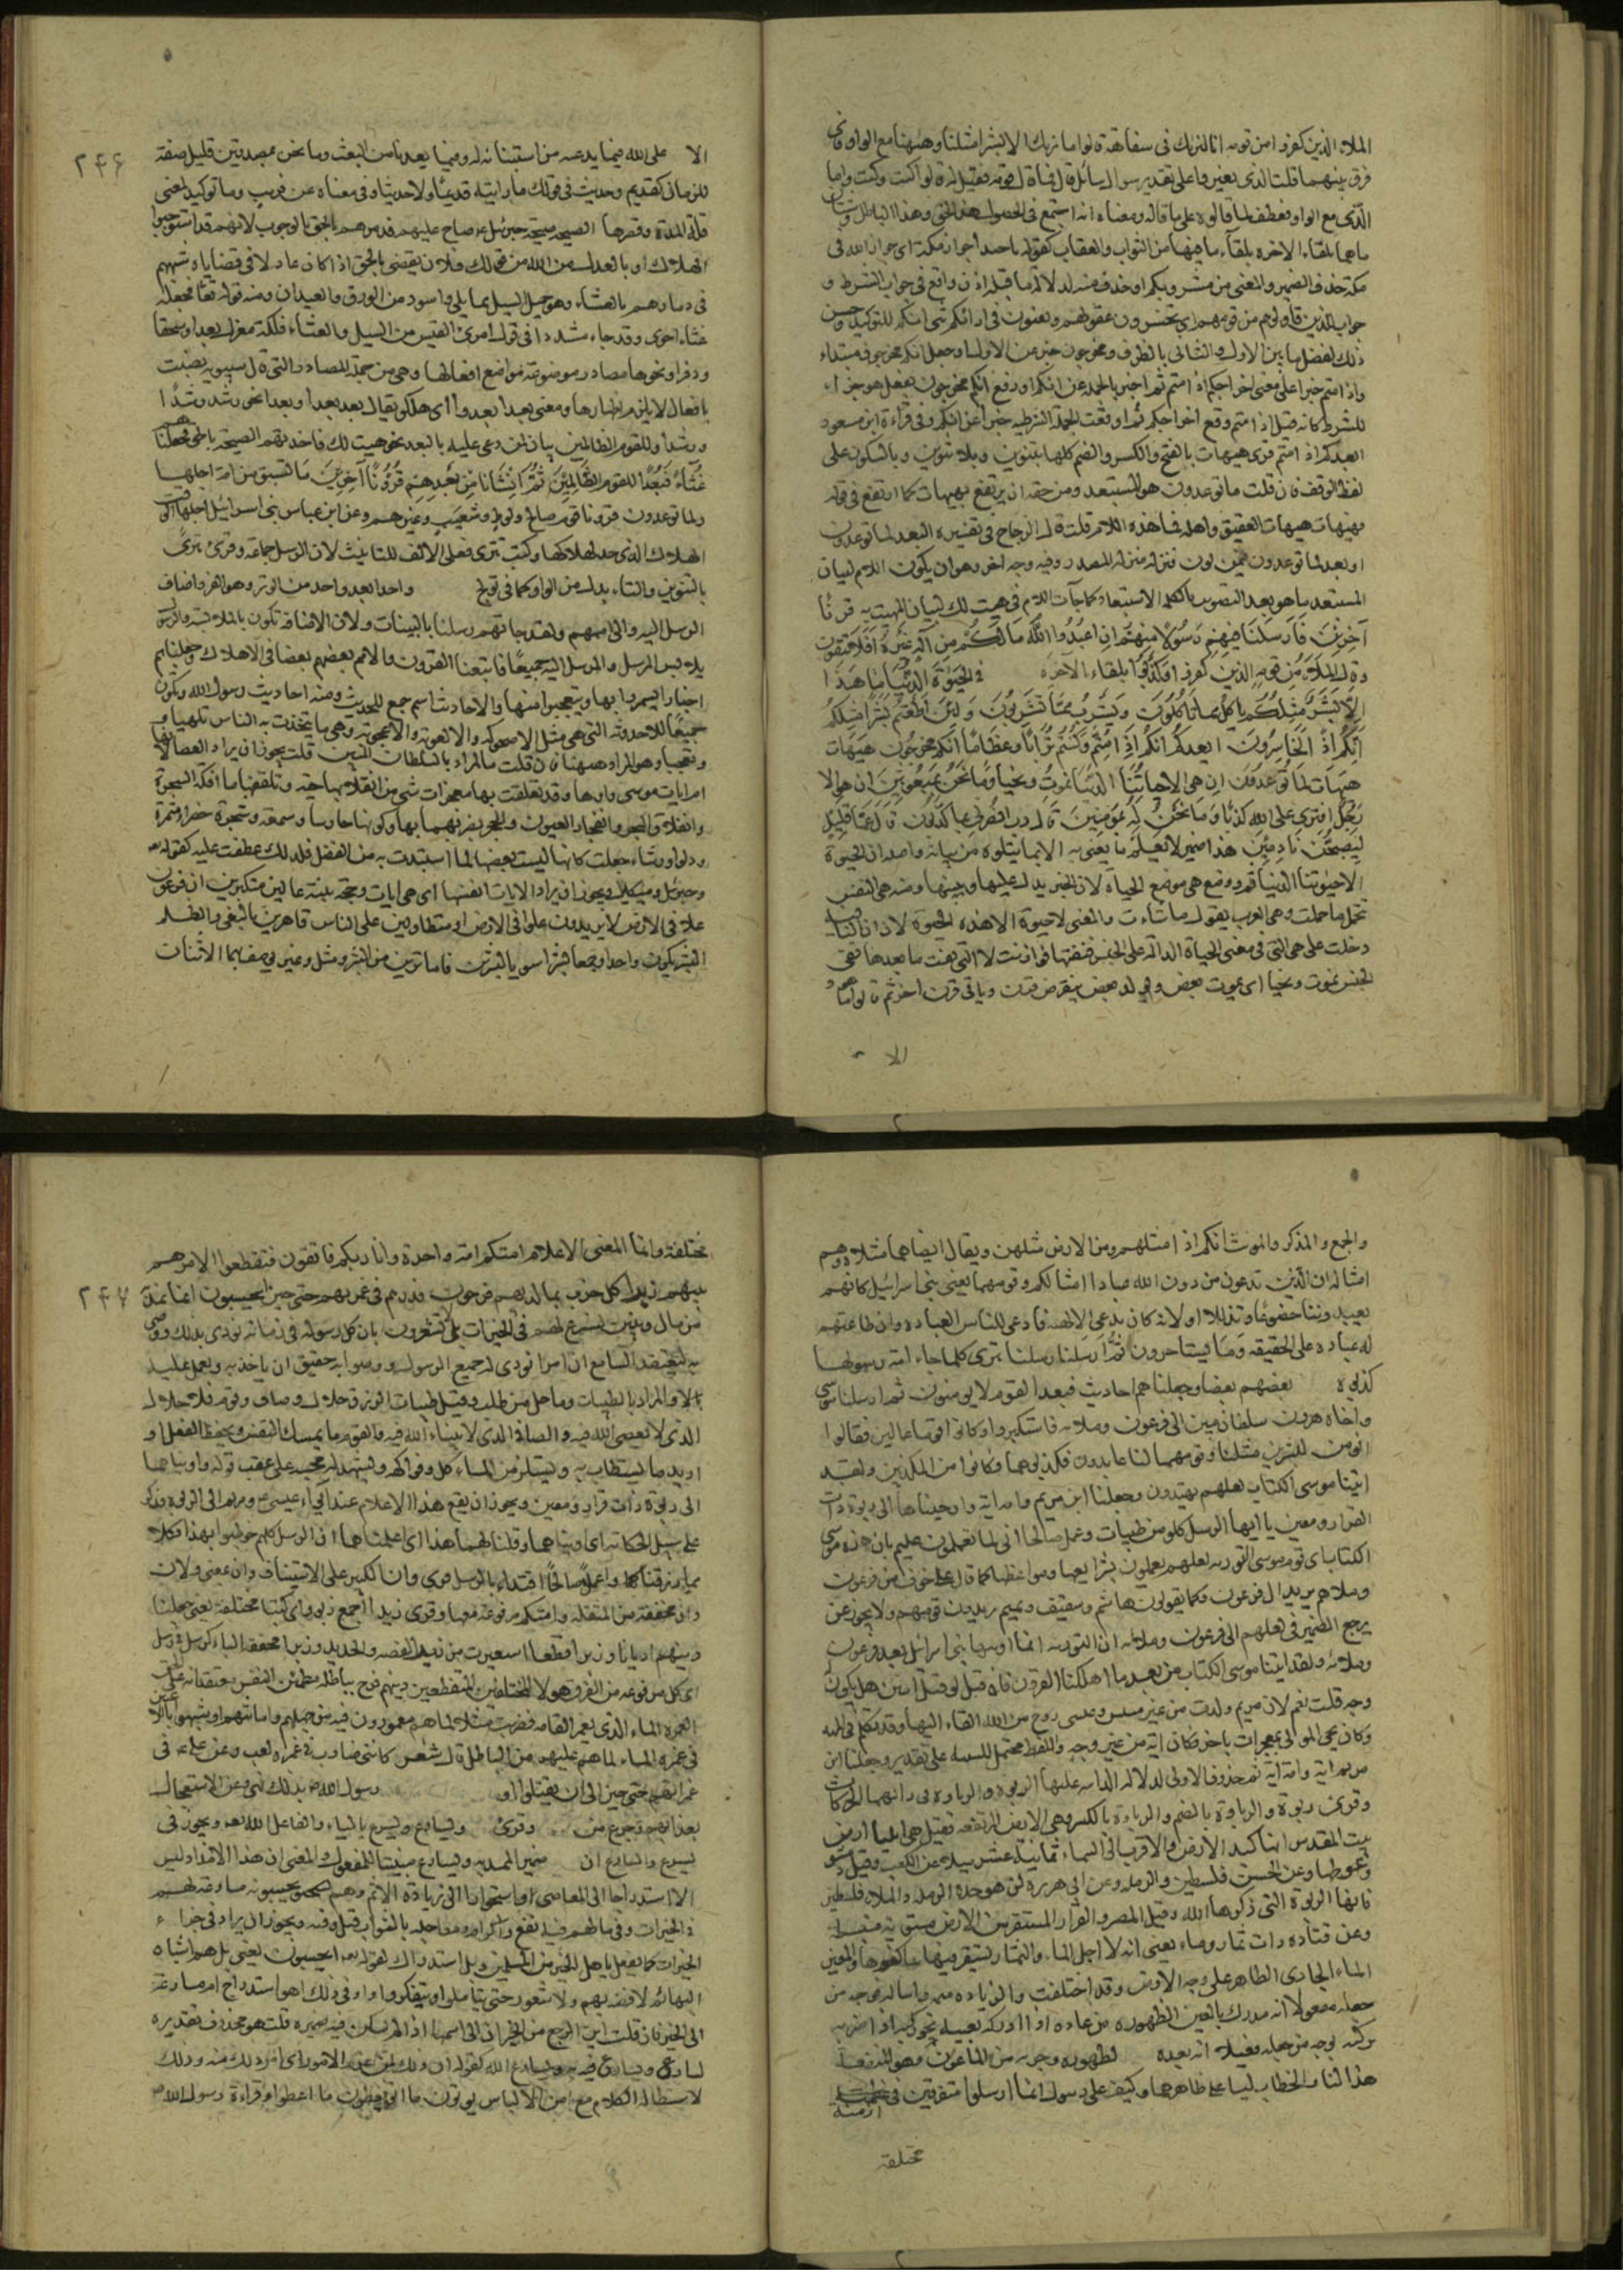 الملاء الذين كفروا من قومه انا لنريك في سفاهة قالوا ما نريك الا بشرا مثلنا وههنا مع الواو فاى
فرق بينهما قلت الذى بغير واو على تقدير سوال سائل قال فما قال قومه فقيل له قالوا كيت وكيت واما
الذى مع الواو فعطف لما قالوه على ما قاله ومعناه انه اجتمع فى الحصول هذا الحق وهذا الباطل وشتان
ماهما بلقاء الاخرة بلقاء ما فيها من الثواب والعقاب كقوله يا حبذا جوار مكة اى جوار الله فى
مكة حذف الضمير والمعنى من مشروبكم او حذف منه لدلالة ما قبله اذن واقع فى جواب الشرط و
جواب للذين قاولوهم من قومهم اى تخسرون عقولكم وتغبنون فى ارائكم ثنى انكم للتوكيد وحسن
ذلك لفصل ما بين الاول والثانى بالظرف ومخرجون خبر عن الاول او جعل انكم مخرجون مبتداء
واذا متم خبرا على معنى اخراجكم اذا متم ثم اخبر بالجملة عن انكم او رفع انكم مخرجون بفعل هو جزاء
للشرط كانه قيل اذا متم وقع اخراجكم ثم اوقعت الجملة الشرطيه خبرا عن انكم وفى قراءة ابن مسعود
ايعدكم اذا متم قرى هيهات بالفتح والكسر والضم كلها بتنوين وبلا تنوين وبالسكون على
لفظ الوقف فان قلت ما توعدون هو المستبعد ومن حقه ان يرتفع بهيهات كما ارتفع فى قوله
فهيهات هيهات العقيق واهله فما هذه اللام قلت قال الزجاج فى تفسيره البعد لما توعدون
او بعد لما توعدون فيمن نون فنزله منزلة المصدر وفيه وجه اخر وهو ان يكون اللام لبيان
المستبعد ما هو بعد التصويت بالكلمة الاستبعاد كما جاءت اللام فى هيت لك لبيان المهيت به قرنًا
آخَرِينَ فَاَرسَلنَا فِيهِم رَسُولًا مِنهُم اَنِ اعبُدُوا اللّٰهَ مَا لَكُم مِن اِلٰهٍ غَيرُهُ اَفَلَا تَتَّقُونَ
وقال الملاء من قومه الذين كفروا وكذبوا بلقاء الآخرة فى الحيوة الدنيا ما هذا
اِلَّا بَشَرٌ مِثلُكُم يَاكُلُ مِمَّا تَاكُلُونَ وَيَشرَبُ مِمَّا تَشرَبُونَ وَلَئِن اَطَعتُم بَشَرًا مِثلَكُم
اِنَّكُم اِذًا لَخَاسِرُونَ ايعدكم انكم اذا مِتُّم وَكُنتُم تُرَابًا وَعِظَامًا اَنَّكُم مُخرَجُونَ هَيهَاتَ
هَيهَاتَ لِمَا تُوعَدُونَ اِن هى الا حياتُنَا الدُّنيَا نَمُوتُ ونحيا وَمَا نَحنُ بِمَبعُوثِينَ ان هو الا
رَجُلٌ افترى على الله كذبا وَمَا نَحنُ لَهُ بِمُومِنِينَ قال رب انصرنى بما كذبون قال عما قليل
لَيُصبِحُنَّ نَادِمِينَ هذا ضمير لا يعلم ما يعنى به الا بما يتلوه من بيانه واصله ان الحيوة
الا حيوتنا الدنيا ثم ووضع هى موضع الحياة لان الخبر يدل عليها ويبينها ومنه هى النفس
تتحمل ما حملت وهى العرب يقول ما شاءت والمعنى لا حيوة الا هذه الحيوة لان ان النافيه
دخلت على هى التى فى معنى الحياة الدالة على الجنس فنفتها فوازنت لا التى نفت ما بعدها نفى
الجنس نموت ونحيا اى يموت بعض ويولد بعض ينقرض قرن وياتى قرن اخر ثم قالوا ما هو
الا
الا على الله فيما يدعيه من استنبائه له وفيما يعدنا من البعث وما نحن بمصدقين قليل صفة
۲۴۶
للزمان كقديم وحديث فى قولك ما رايته قديمًا ولا حديثا وفى معناه عن قريب وما توكيد لمعنى
قلة المدة وقصرها الصيحة صيحة جبرئيل ع صاح عليهم فدمرهم بالحق بالوجوب لانهم قد استوجبوا
الهلاك او بالعدل من الله من قولك فلان يقضى بالحق اذا كان عادلا فى قضاياه شبههم
فى دمارهم بالغثاء وهو حميل السيل مما بلى واسود من الورق والعيدان ومنه قوله تعالى فجعله
غثاء احوى وقد جاء مشددا فى قول امرئ القيس من السيل والغثاء فلكة مغزل بعدا وسحقا
ودفرا ونحوها مصادر موضوعة مواضع افعالها وهى من جملة المصادر التى قال سيبويه نصبت
بافعال لا يلزم اظهارها ومعنى بعدا بعدوا اى هلكوا يقال بعد بعدا وبعدا نحو رشد رشدًا
ورشدا وللقوم الظالمين بيان لمن دعى عليه بالبعد نحو هيت لك فاخذتهم الصيحة بالحق فجعلناهم
غُثَاءً فَبُعدًا لِلقَومِ الظَّالِمِينَ ثُمَّ اَنشَانَا مِن بَعدِهِم قُرُونًا آخَرِينَ مَا تَسبِقُ مِن امة اجلها
قرونا قوم صالح ولوط وشعيب وغيرهم وعن ابن عباس بنى اسرائيل اجلها الوقت
الهلاك الذى حد لهلاكها وكتب تترى فعلى الالف للتانيث لان الرسل جماعة وقرئ تترىً
بالتنوين والتاء بدل من الواو كما فى تولج واحدا بعد واحد من الوتر وهو الفرد اضاف
الرسل اليه والى اممهم ولقد جاءتهم رسلنا بالبينات ولان الاضافة تكون بالملابسة والرسول
يلابس المرسل والمرسل اليه جميعًا فاتبعنا القرون والامم بعضهم بعضا فى الاهلاك وجعلناهم
اخبارا يسمر بها ويتعجب منها والاحاديث اسم جمع للحديث ومنه احاديث رسول الله وتكون
جميعًا للاحدوثة التى هى مثل الاضحوكة والالعوبة والاعجوبة وهى ما يتحدث به الناس تلهيا و
وتعجبا وهو المراد ههنا فان قلت ما المراد بالسلطان المبين قلت يجوز ان يراد العصا لانها
ام ايات موسى واولاها وقد تعلقت بها معجزات شتى من انقلابها حية وتلقفها ما افكته السحرة
وانفلاق البحر وانفجار العيون من الحجر بضربهما بها وكونها حارسا وشمعة وشجرة خضراء مثمرة
ودلوا ورشاء جعلت كانها ليست بعضها لما استبدت به من الفضل فلذلك عطفت عليه كقوله
وجبرئيل وميكائيل ويجوز ان يراد الايات انفسها اى هى ايات وحجة بينة عالين متكبرين ان فرعون
علا فى الارض لا يريدون علوا فى الارض او متطاولين على الناس قاهرين بالبغى والظلم
البشر يكون واحدا وجمعا بشرا سويا لبشرين فاما ترين من البشر ومثل وغير يوصف بهما الاثنان
والجمع والمذكر والمونث انكم اذا مثلهم ومن الارض مثلهن ويقال ايضا هما مثلاه وهم
امثاله ان الذين تدعون من دون الله عبادا امثالكم وقومهما يعنى بنى اسرائيل كانهم
يعبدوننا خضوعًا وتذللا او لانه كان يدعى الالهية فادعى للناس العبادة وان طاعتهم
له عبادة على الحقيقه وَمَا يستاخرون ثُمَّ ارسلنا رسلنا تترى كلما جاء امة رسولها
كذبوه بعضهم بعضا وجعلناهم احاديث فبعدا لقوم لا يومنون ثم ارسلنا موسى
واخاه هرون سلطان مبين الى فرعون وملائه فاستكبروا وكانوا قوما عالين فقالوا
انومن لبشرين مثلنا وقومهما لنا عابدون فكذبوهما فكانوا من المكذبين ولقد
اتينا موسى الكتاب لعلهم يهتدون وجعلنا ابن مريم وامه اية واويناهما الى ربوة ذات
القرار ومعين يا ايها الرسل كلوا من طيبات وعمل صالحا انى لما تعملون عليم بان هذه موسى
الكتاب اى قوم موسى التوريه لعلهم يعملون بشرايعها ومواعظها كما قال على خوف من فرعون
وملاهم يريد ال فرعون وكما يقولون هاشم وثقيف وتميم يريدون قومهم ولا يجوز ان
يرجع الضمير فى لعلهم الى فرعون وملائه لان التوريه انما اوتيها بنى اسرائيل بعد فرعون
وملائه ولقد اتينا موسى الكتاب من بعد ما اهلكنا القرون فان قيل لو قيل ايتين هل يكون
وجه قلت نعم لان مريم ولدت من غير مسيس وعيسى روح من الله القاه اليها وقد تكلم فى المهد
وكان يحى الموتى بمعجزات باخر فكان اية من غير وجه واللفظ محتمل للتثنية على تقدير وجعلنا ابن
مريم اية وامه اية ثم حذف الاولى لدلالة الثانيه عليها الربوة والرباوة
وقرئ ربوة والرباوة بالضم والرباوة بالكسر وهى الارض المرتفعة فقيل هى ايليا ارض
بيت المقدس انها كبد الارض والاقرب الى السماء ثمانية عشر ميلا عن الكعب وقيل دمشق
وغوطها وعن الحسن فلسطين والرمله وعن ابى هريره هذه الرمله رملة فلسطين
فانها الربوة التى ذكرها الله وقيل المصر والقرار المستقر من الارض مستوية منبسطة
وعن قتاده ذات ثمار وماء يعنى انه لاجل الثمار يستقر فيها ساكنوها والمعين
الماء الجارى الظاهر على وجه الارض وقد اختلفت والزيادة ميمه واصالته فوجه من
جعله مفعولا انه مدرك بالعين لظهوره من عانه اذا ادركه بعينه نحو ركبه اذا ضربه
بركبته ووجه من جعله فعيلا انه بعيد لظهوره وجريه من الماعون وهو المنفعة
هذا النداء والخطاب ليسا على ظاهرهما وكيف على رسول انما ارسلوا متفرقين فى
ازمنة
مختلفة
مختلفة وانما المعنى الاعلام امتكم امة واحدة وانا ربكم فاتقون فتقطعوا الامر هم
۲۴۷
بينهم زبرا كل حزب بما لديهم فرحون فذرهم فى غمرتهم حتى حين ايحسبون انما نمد
من مال وبنين نسارع لهم فى الخيرات بل لا تشعرون بان كل رسول فى زمانه نودى بذلك ووصى
به ليعتقد السامع ان امرا نودى له جميع الرسول ووصوا به حقيق ان ياخذ به ويعمل عليه
والمراد بالطيبات وما حل من طلب وقيل طيبات الرزق حلال وصاف وقوام فلا حلال
الذى لا يعصى الله فيه والصافى الذى لا ينساء الله فيه والقوم ما يمسك النفس ويحفظ العقل او
اريد ما يستطاب به ويستلذ من الماكل وفواكه وليشهد له مجيه على عقب قوله واويناهما
الى ربوة ذات قرار ومعين ويجوز ان يقع هذا الاعلام عند ايواء عيسى ع ومريم الى الربوة فذكر
على سبيل الحكاية اى اويناهما وقلنا لهما هذا اى اعلمناهما ان الرسل كلهم خوطبوا بهذا فكلا
مما رزقناكما واعملا صالحا اقتداء بالرسل قرى وان بالكسر على الاستيناف وان بمعنى ولان
وان مخففة من المثقله وامتكم مرفوعة معها وقرى زبرا جمع زبور اى كتبا مختلفة يعنى جعلنا
دينهم اديانا وزبرا قطعا استعيرت من زبر الفضه والحديد وزبرا مخففه الباء كرسل فى رسل
اى كل من فرقة من الفرق هولاء المختلفين المتقطعين دينهم فرح بباطله مطمئن النفس معتقد انه على الحق
الغمرة الماء الذى يغمر القامه فضربت مثلا لما هم مغمورون فيه من جهلهم وعمايتهم او شبهوا باللاعبين
فى غمرة الماء لما هم عليه من الباطل قال شعر كاننى ضارب فى غمرة لعب وعن على ع فى
غمراتهم حتى حين الى ان يقتلوا او رسول الله ص بذلك نهى وعن الاستعجال
بعذابهم وجزع من وقرئ ويسارع ويسرع بالياء والفاعل الله تعالى ويجوز فى
يسرع ويسارع ان ضمير الممد به ويسارع مبنيا للمفعول والمعنى ان هذا الامداد ليس
الا استدراجا الى المعاصى او استجرارا الى زيادة الاثم وهم يحسبونه مسارعة لهم
فى الخيرات وفيما لهم فيه نفع واكرام ومعاجلة بالثواب قبل وقته ويجوز ان يراد فى جزاء
الخيرات كما يفعل باهل الخير من المسلمين وبل استدراك لقوله ايحسبون يعنى بل هم اشباه
البهائم لا فطنة بهم ولا شعور حتى يتاملوا او يتفكروا وا فى ذلك اهو استدراج ام مسارعة
الى الخير فان قلت اين الراجع من الخبر ان الى اسمها اذا لم يكن فيه ضميره قلت هو محذوف تقديره
نسارع ويسارع فيه ويسارع الله كقوله ان ذلك لمن عزم الامور اى ان ذلك منه وذلك
لاستطالة الكلام مع امن الالباس يوتون ما اتوا يعطون ما اعطوا وقراءة رسول الله ص